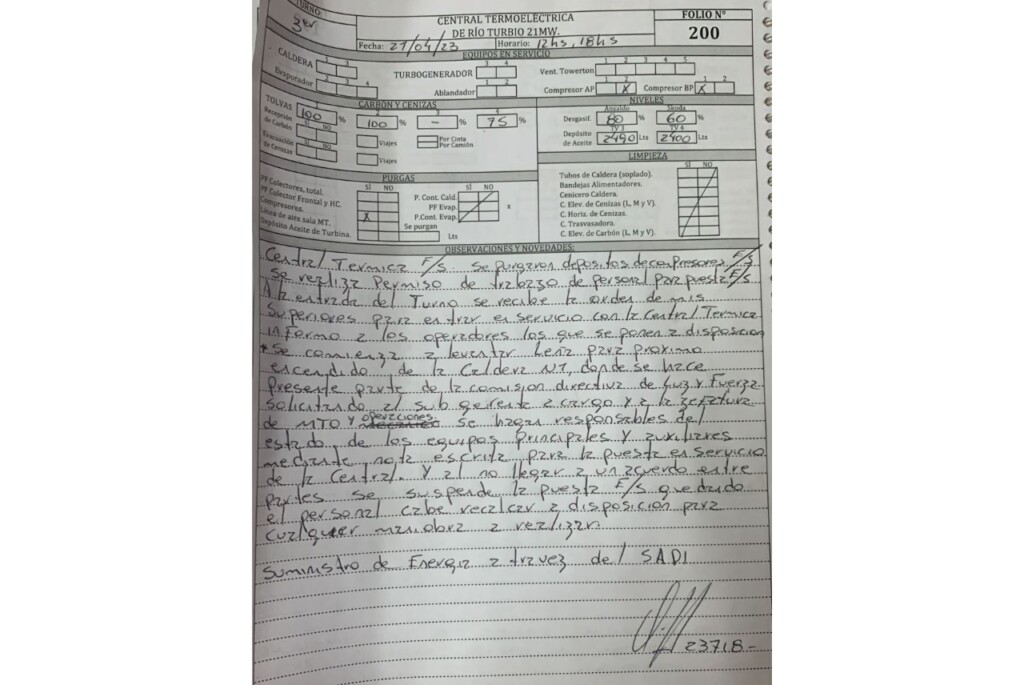 TURNO:
3er
CENTRAL TERMOELÉCTRICA
DE RÍO TURBIO 21MW.
FOLIO N°
200
Fecha: 21/04/23 Horario: 12hs, 18hs
EQUIPOS EN SERVICIO
CALDERA 1 3
Evaporador 2 3 4
TURBOGENERADOR 3 4
Ablandador 1 2
Vent. Towerton 1 2 3 4 5
Compresor AP 1 2 X Compresor BP 1 2 X
CARBÓN Y CENIZAS
TOLVAS 1 100 % 2 100 % 3 - % 4 75 %
Recepción de Carbón SI NO Viajes Por Cinta Por Camión
Evacuación de Cenizas SI NO Viajes
NIVELES
Ansaldo Skoda
Desgasif. 80 % 60 %
TV 3 TV 4
Depósito de Aceite 2490 Lts 2400 Lts
PURGAS
SÍ NO SÍ NO
PF Colectores, total.
PF Colector Frontal y HC.
Compresores.
Línea de aire sala MT. X
Depósito Aceite de Turbina.
P. Cont. Cald.
PF Evap. x
P.Cont. Evap.
Se purgan Lts
LIMPIEZA
SÍ NO
Tubos de Caldera (soplado).
Bandejas Alimentadores.
Cenicero Caldera.
C. Elev. de Cenizas (L, M y V).
C. Horiz. de Cenizas.
C. Trasvasadora.
C. Elev. de Carbón (L, M y V).
OBSERVACIONES Y NOVEDADES:
Central Termica F/S. Se purgaron depositos de compresores F/S
Se realiza Permiso de trabazo de personal para puesta F/S
A la entrada del Turno se recibe la orden de mis
Superiores para entrar en servicio con la Central Termica
informo a los operadores los que se ponen a disposicion
* Se comienza a levantar Leña para proximo
encendido, de la Caldera N°1, donde se hace
Presente parte de la comision directiva de Luz y Fuerza
Solicitando al sub gerente a cargo y a la zefatura
de MTO y operaciones se hagan responsables del
estado de los equipos Principales y auxiliares
mediante nota escrita para la puesta en servicio
de la Central. Y al no llegar a un acuerdo entre
partes se suspende la puesta F/S quedando
el personal cabe recalcar a disposicion para
Cualquier maniobra a realizar.
Suministro de Energia a travez del SADI
23718-